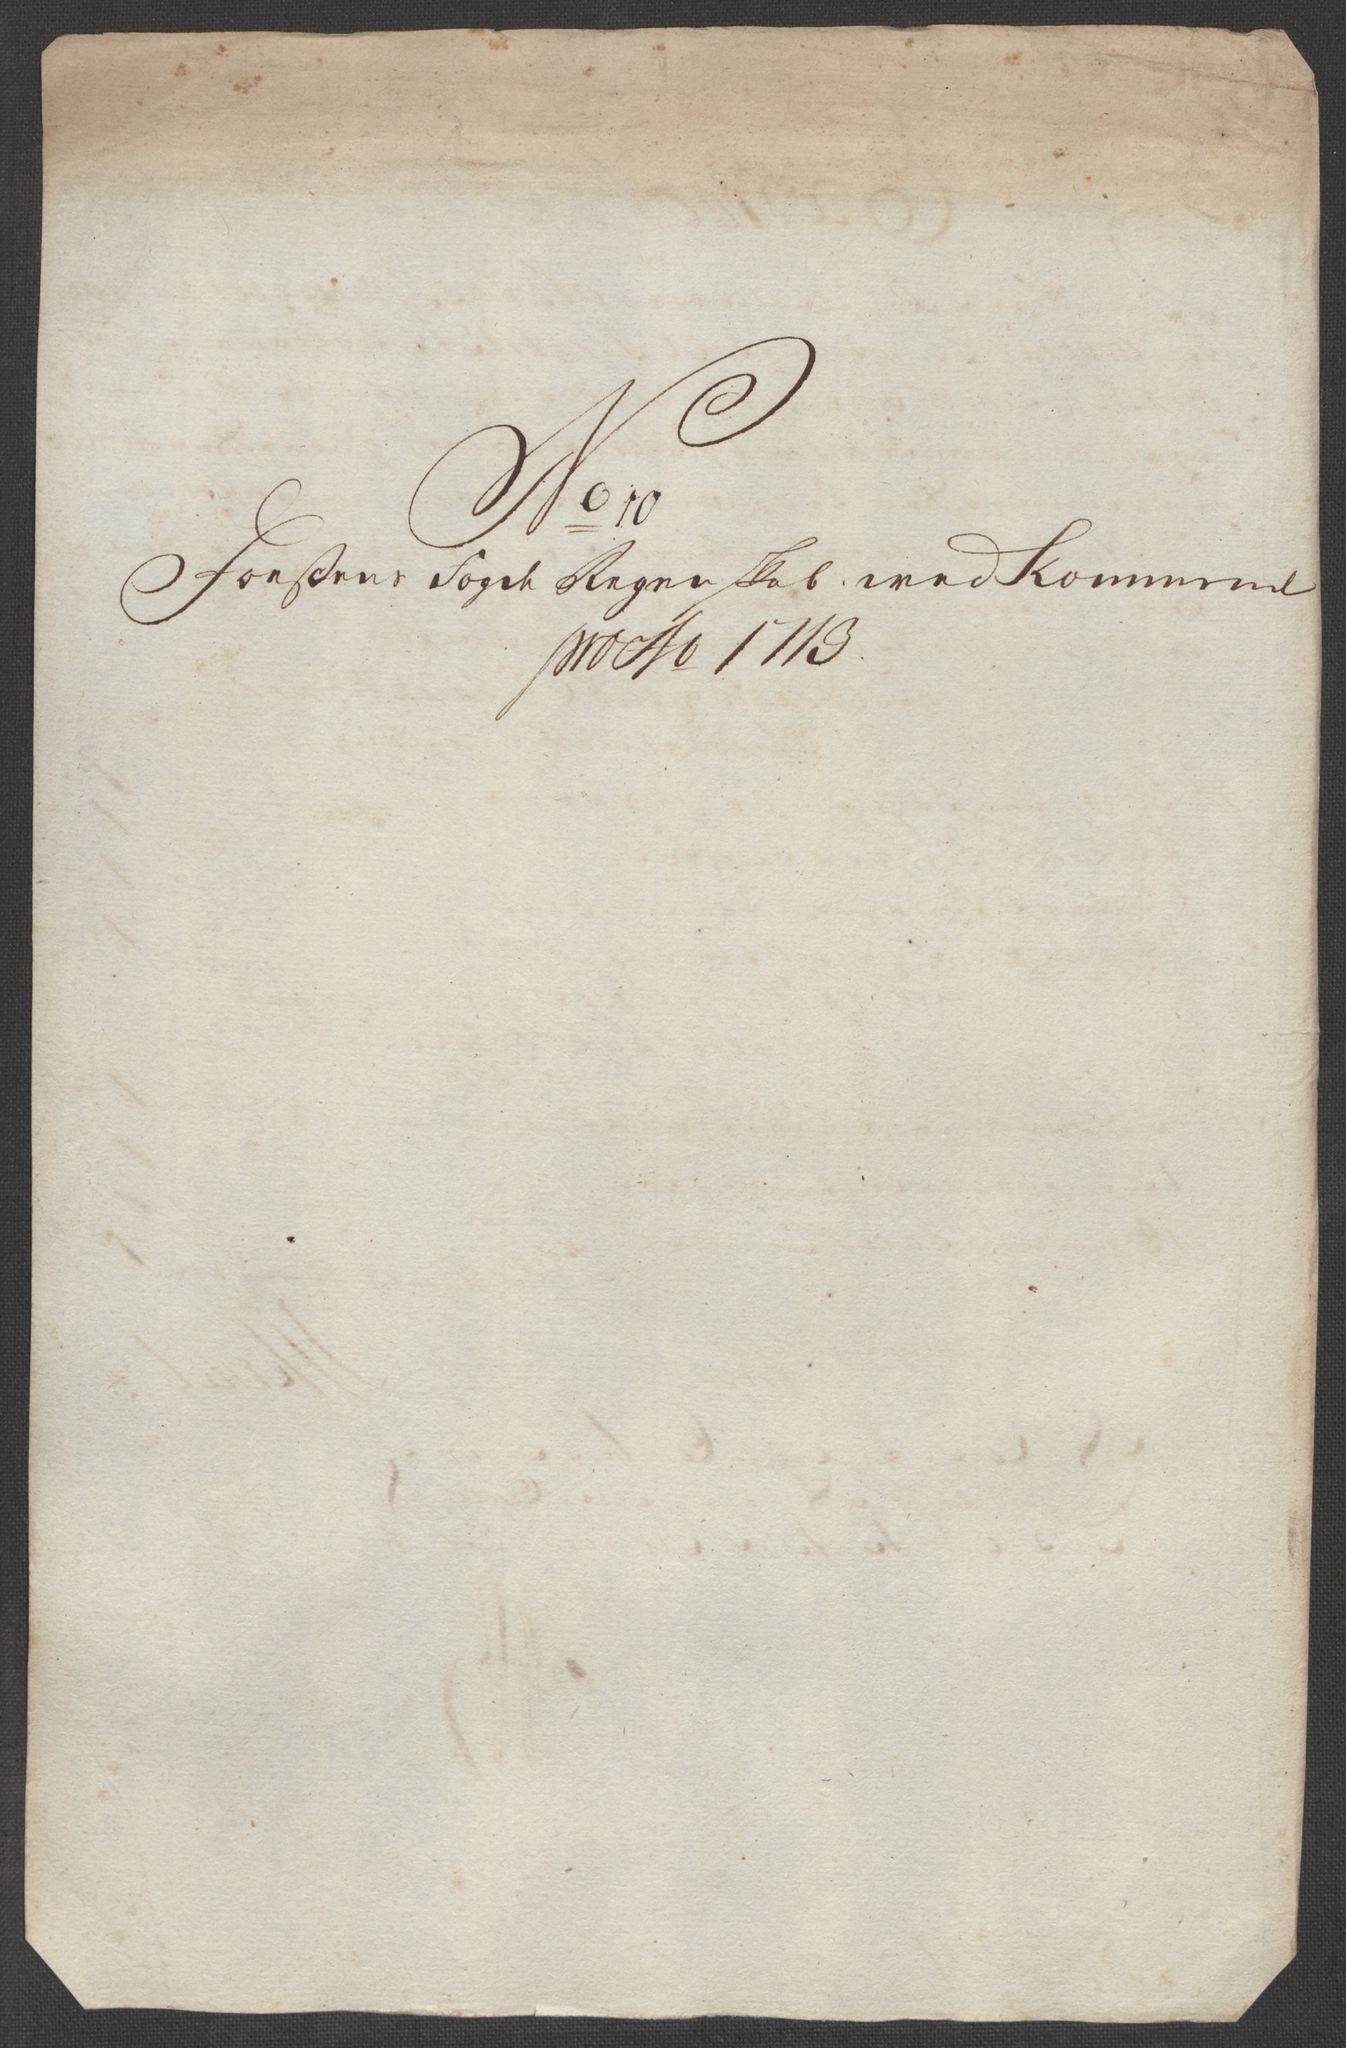 No 10
Foeßens fogde Regenskab wed Kommend
pro Ao 1713.